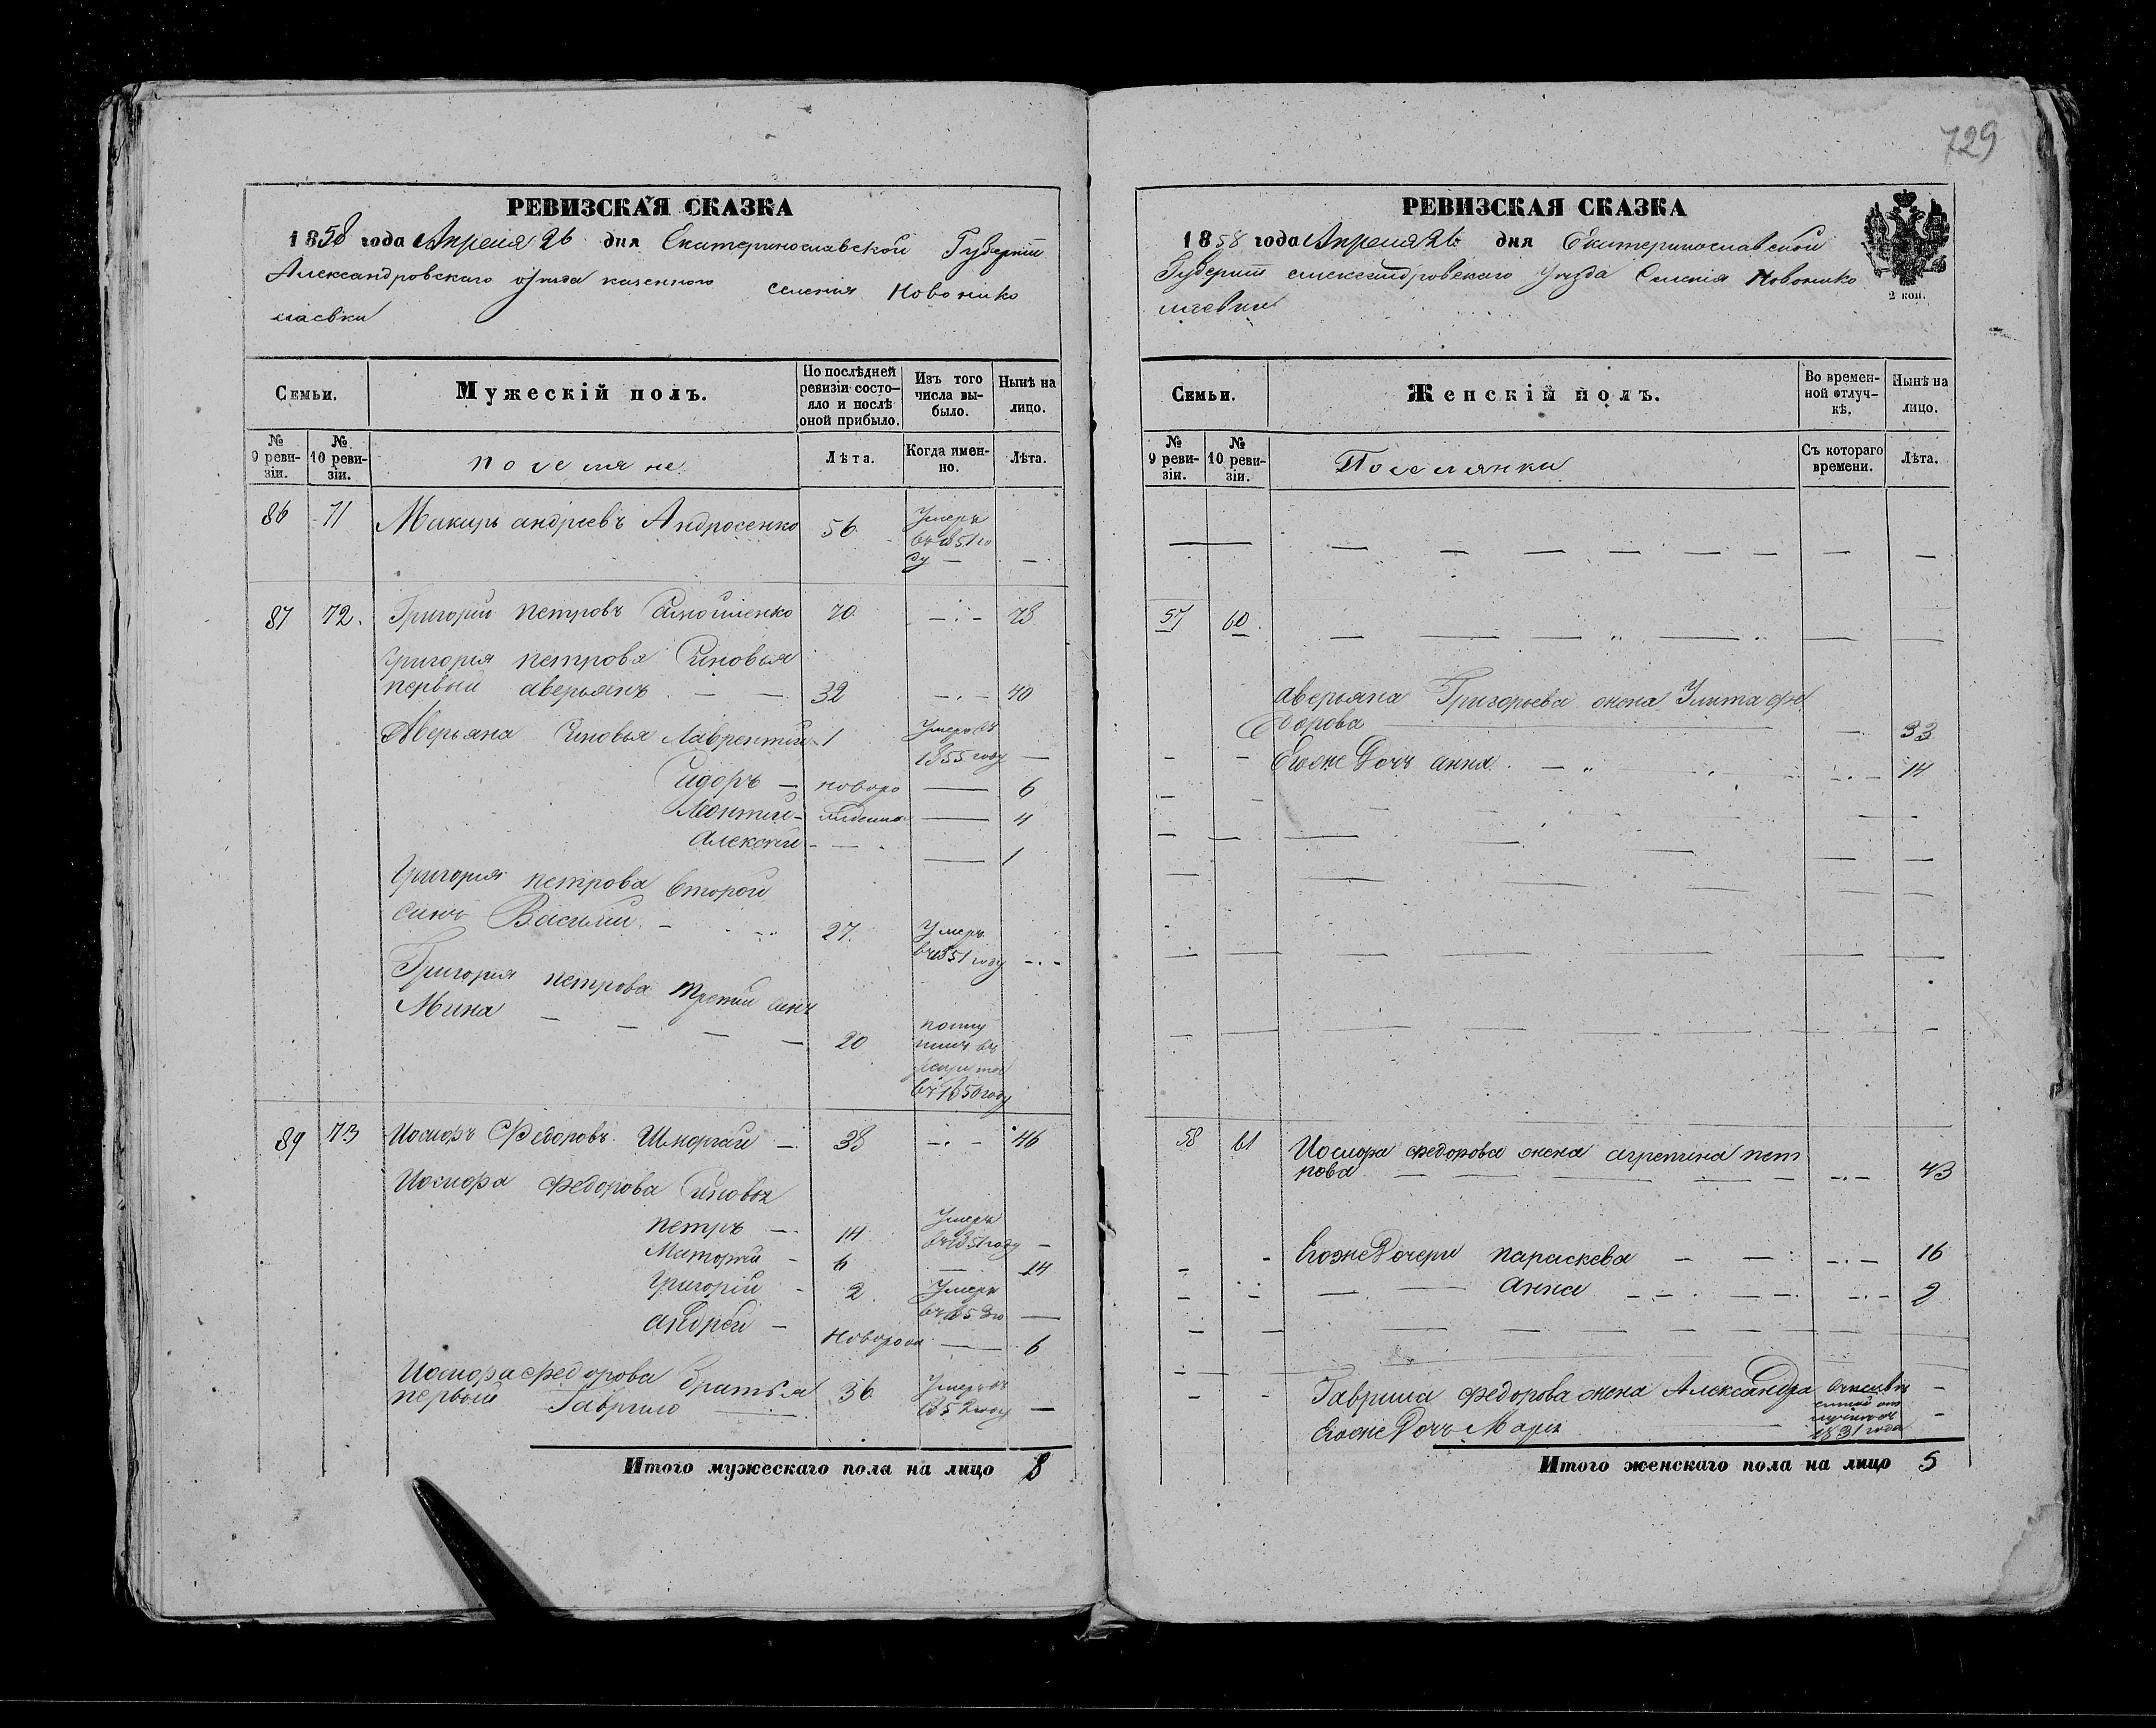 РЕВИЗСКАЯ СКАЗКА
1858 года Апреля 26 дня Екатеринославской Губернiи
Александровскаго уѣзда казенного селенiя Новонико
лаевки
Семьи.
Мужескiй полъ.
По послѣдней ревизiи состо-
яло и послѣ оной прибыло.
Изъ того числа вы-
было.
Нынѣ на лицо.
№ 9 реви-
зiи.
№ 10 реви-
зiи.
поселяне
Лѣта.
Когда имен-
но.
Лѣта.
86 71 Макаръ андреевъ Андросенко 56 Умеръ
въ 1851 го
ду — —
87 72. Григорiй петровъ 70 — 78
Григорiя петрова Сыновья
первый аверьянъ — — 32 — 40
Аверьяна Сыновья Лаврентiй 1 Умеръ въ
1855 году —
Сидоръ — новоро — 6
Леонтiй — жденные — 4
Алексѣй — — 1
Григорiя петрова второй
сынъ Василiй. — 27. Умеръ
въ 1851 году —
Григорiя петрова третiй сынъ
Мина — — — — 20 посту
пилъ въ
рекруты
въ 1850 году
89 73 Иосифъ Федоровъ 38 — 46
Иосифа Федорова Сыновья
петръ — 14 Умеръ
въ 1851 году —
6 — 14
Григорiй — 2. Умеръ
въ 1853 го —
андрей — Новорож — 6
Иосифа федорова братья
первый Гаврило — 36 Умеръ въ
1852 году —
Итого мужескаго пола на лицо 8
729
РЕВИЗСКАЯ СКАЗКА
1858 года Апреля 26 дня Екатеринославской
Губернiи александровскаго уѣзда Селенiя Новонико
лаевки
2 коп.
Семьи.
Женскiй полъ.
Во времен-
ной отлуч-
кѣ.
Нынѣ на лицо.
№ 9 реви-
зiи.
№ 10 реви-
зiи.
Поселянки
Съ котораго времени.
Лѣта.
57 60.
аверьяна Григорьева жена Улита фе
дорова — — 33
Егоже Дочь анна. — — 14
58 61 Иосифа федорова жена агрепина пет
рова — — 43
Егоже Дочери параскева — — 16
— анна — — 2
Гаврила федорова жена Александра —
Егоже Дочь Марiя 1831 года —
Итого женскаго пола на лицо 5